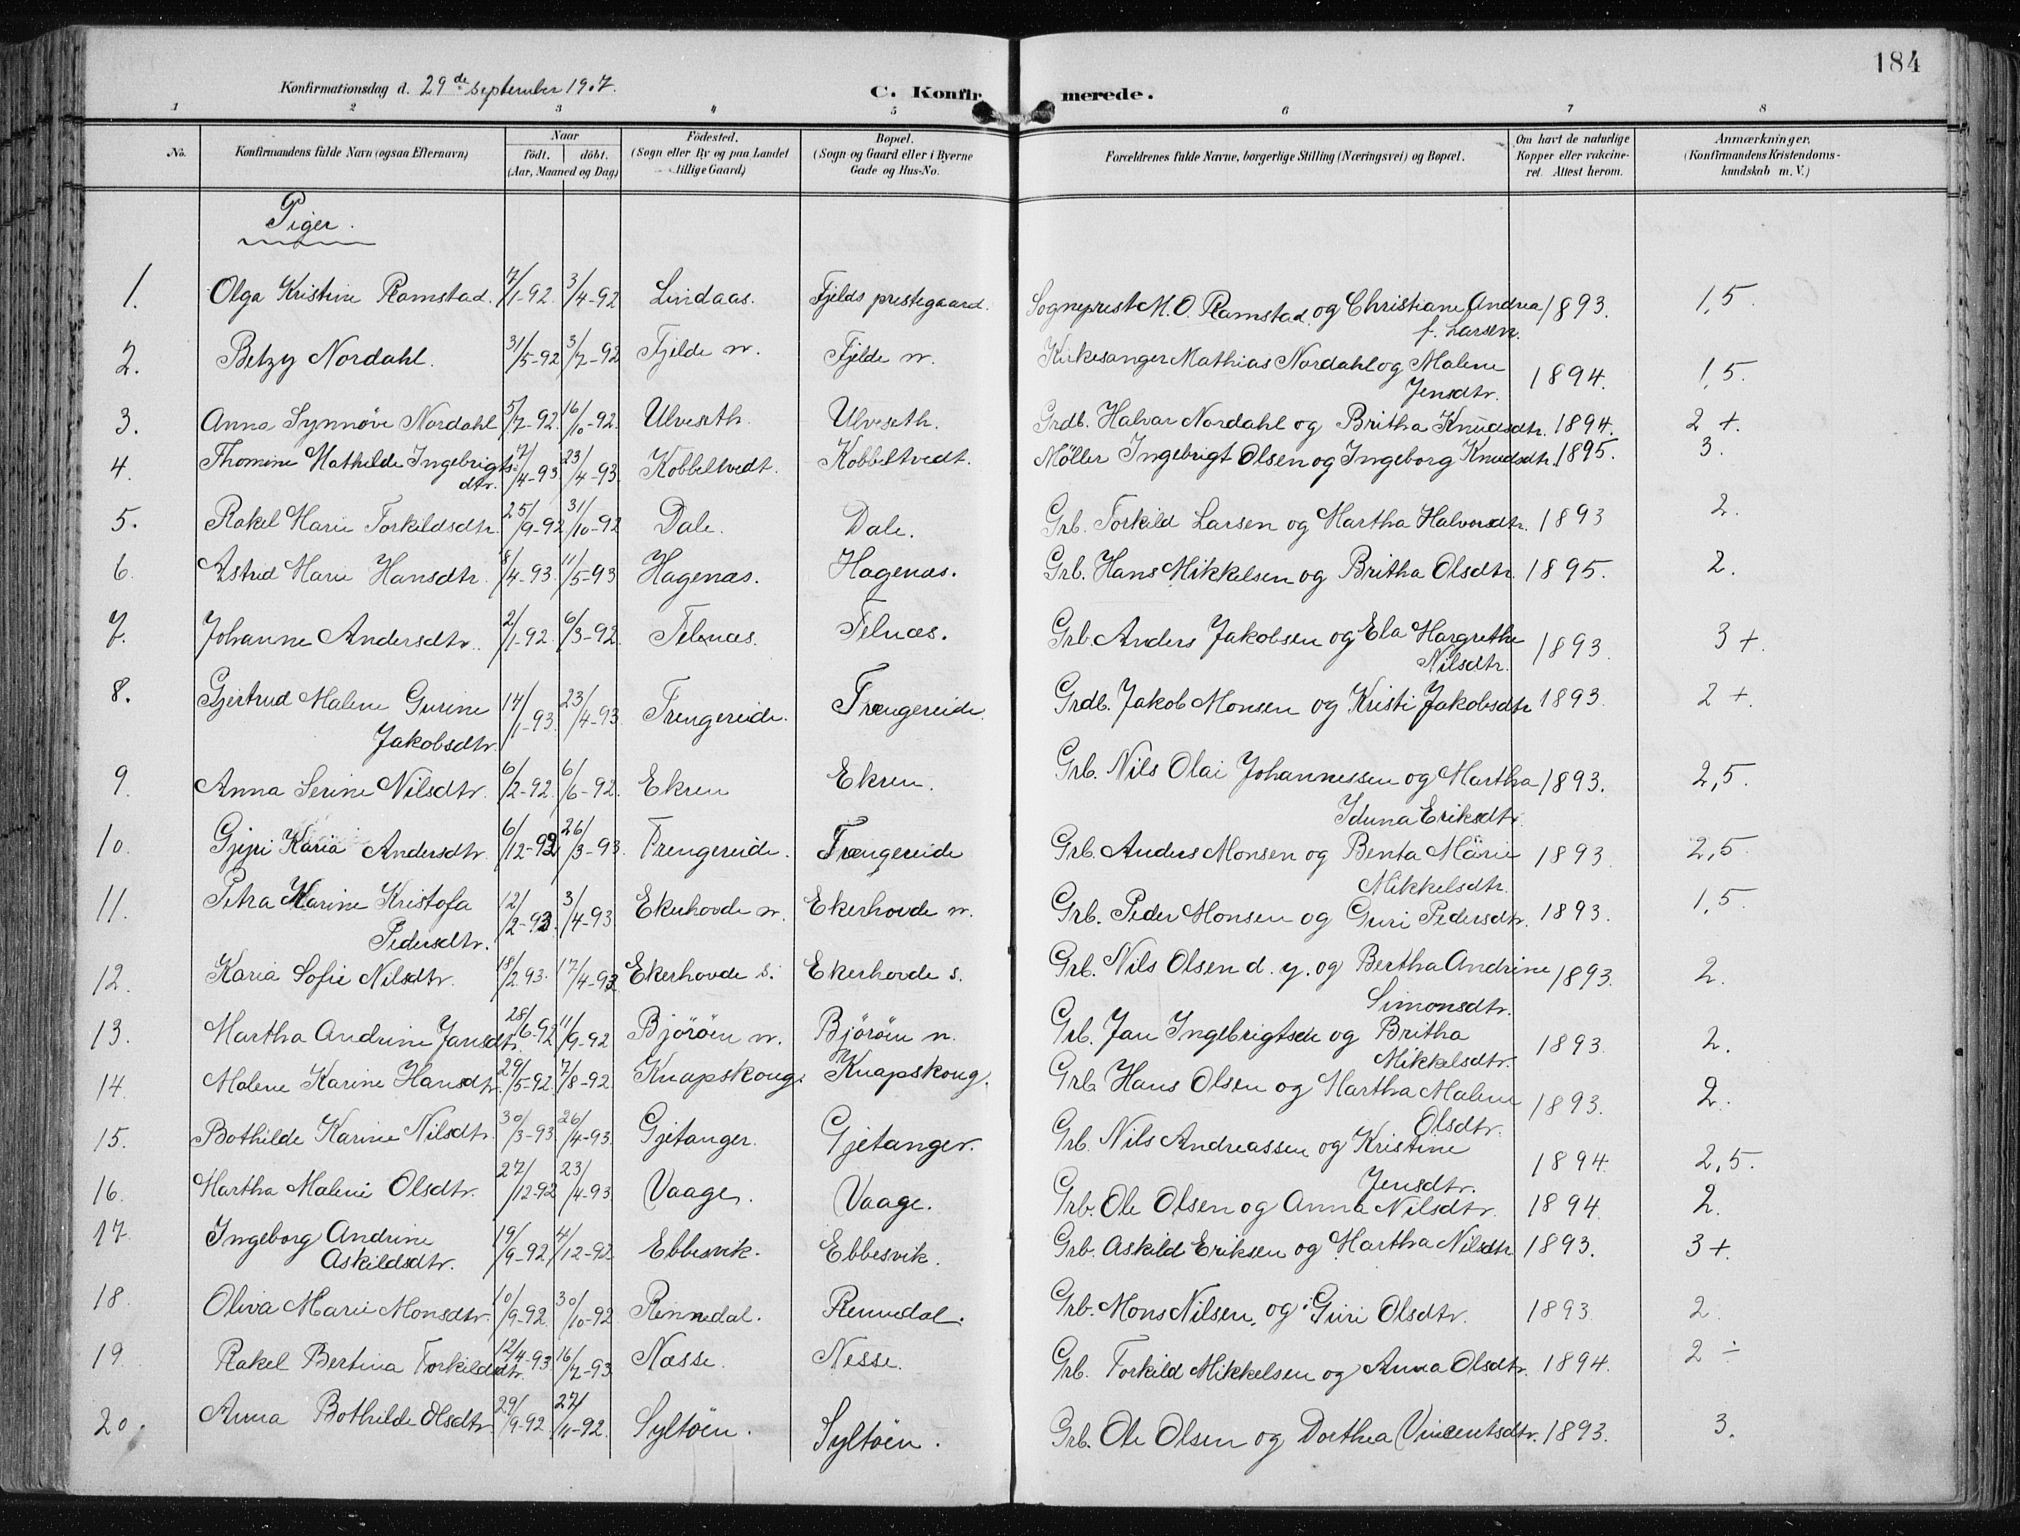 184
Konfirmationsdag d. 29de september 1907.
C. Konfirmerede.
1 2 3 4 5 6 7 8
No. Konfirmandens fulde Navn (ogsaa Efternavn) Naar födt. döbt. (Aar, Maaned og Dag) Födested. (Sogn eller By og paa Landet tillige Gaard) Bopæl. (Sogn og Gaard eller i Byerne Gade og Hus-No. Forældrenes fulde Navne, borgerlige Stilling (Næringsvei) og Bopæl. Om havt de naturlige Kopper eller vakcineret. Attest herom. Anmærkninger, (Konfirmandens Kristendomskundskab m. V.)
Piger.
1. Olga Kristine Ramstad. 7/1-92. 3/4-92 Lindaas. Fjelds prestegaard. Sogneprest M. O. Ramstad og Christiane Andrea f. Larsen. 1893. 1,5.
2. Betzy Nordahl. 31/5-92 3/7-92 Fjelde n. Fjelde n. Kirkesanger Mathias Nordahl og Malene Jensdtr. 1894. 1,5.
3. Anna Synnøve Nordahl 5/7-92. 16/10-92. Ulveseth. Ulveseth. Grdb. Halvar Nordahl og Britha Knudsdtr. 1894. 2 +.
4. Thomine Mathilde Ingebrigtsdtr. 17/4-93 23/4-93. Kobbeltvedt. Kobbeltvedt. Møller Ingebrigt Olsen og Ingeborg Knudsdtr. 1895. 3.
5. Rakel Marie Torkildsdtr. 25/9-92 31/10-92 Dale. Dale. Grb. Torkild Larsen og Martha Halvorsdtr. 1893 2.
6. Astrid Marie Hansdtr. 8/4-93. 11/5-93 Hagenæs. Hagenæs. Grb. Hans Mikkelsen og Britha Olsdtr. 1895. 2.
7. Johanne Andersdtr. 2/1-92. 6/3-92. Telnæs. Telnæs. Grb. Anders Jakobsen og Ela Margrethe Nilsdtr. 1893. 3 +.
8. Gjertrud Malene Gurine Jakobsdtr. 14/1-93. 23/4-93. Trengereide. Trengereide. Grdb. Jakob Monsen og Kristi Jakobsdtr 1893. 2 +.
9. Anna Serine Nilsdtr. 6/2-92. 6/6-92. Ekren Ekren. Grb. Nils Olai Johannessen og Martha Iduna Eriksdtr. 1893. 2,5.
10. Gjgri Karia Andersdtr. 6/12-92 26/3-93. Trengereide. Trengereide Grb. Anders Monsen og Benta Marie Mikkelsdtr. 1893. 2,5.
11. Petra Karine Kristofa Pedersdtr. 12/2-93. 3/4-93 Ekerhovde n. Ekerhovde n. Grb. Peder Monsen og Guri Pedersdtr. 1893. 1,5.
12. Karia Sofie Nilsdtr. 18/2 93. 17/4-93. Ekerhovde s. Ekerhovde s. Grb. Nils Olsen d. y. og Bertha Andrine Simonsdtr. 1893. 2.
13. Martha Andrine Jansdtr. 28/6-92 11/9-92 Björöen n. Björöen n. Grb. Jan Ingebrigtsen og Britha Mikkelsdtr. 1893. 2.
14. Malene Karine Hansdtr. 29/5-92. 7/8-92. Knapskoug. Knapskoug. Grb. Hans Olsen og Martha Malene Olsdtr. 1893. 2.
15. Bothilde Karine Nilsdtr. 30/3-93. 26/4-93. Gjetanger. Gjetanger. Grb. Nils Andreassen og Kristine Jensdtr. 1894. 2,5.
16. Martha Malene Olsdtr. 27/12-92 23/4-93 Vaage. Vaage. Grb. Ole Olsen og Anna Nilsdtr. 1894. 2.
17. Ingeborg Andrine Askildsdtr. 19/9-92 4/12-92. Ebbesvik. Ebbesvik. Grb. Askild Eriksen og Martha Nilsdtr 1893. 3 +.
18. Oliva Marie Monsdtr. 10/9-92. 30/10-92 Rennedal. Rennedal. Grb. Mons Nilsen, og Guri Olsdtr. 1893. 2.
19. Rakel Bertina Torkildsdtr. 12/4-93. 16/7-93. Næsse. Nesse. Grb. Torkild Mikkelsen og Anna Olsdtr. 1894. 2 ÷
20. Anna Bothilde Olsdtr. 29/9-92. 27/11-92. Syltöen. Syltöen. Grb. Ole Olsen og Dorthea Vincentsdtr. 1893. 3.